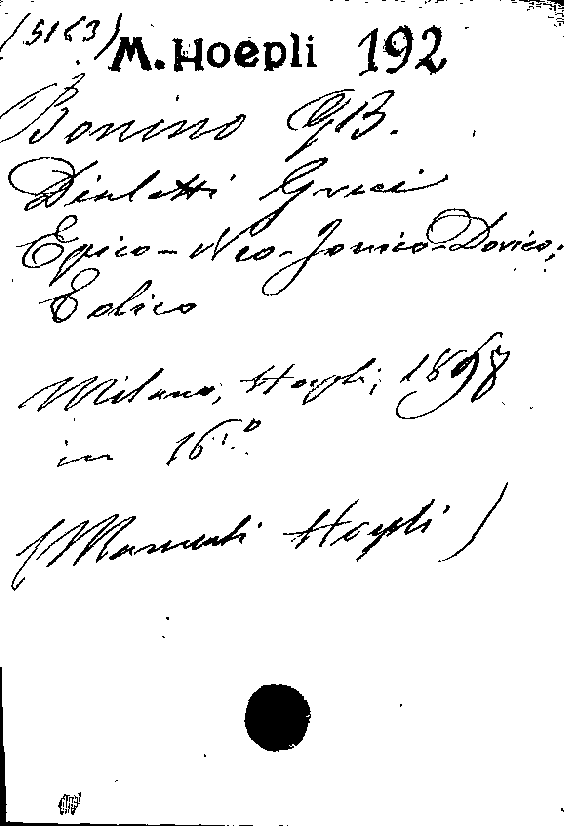 (5163) M. Hoepli 192
Bonino G.B.
Dialetti Greci
Epico-Neo-Jonico-Dorico,
Eolico
Milano, Hoepli, 1898
in 16.°
(Manuali Hoepli)